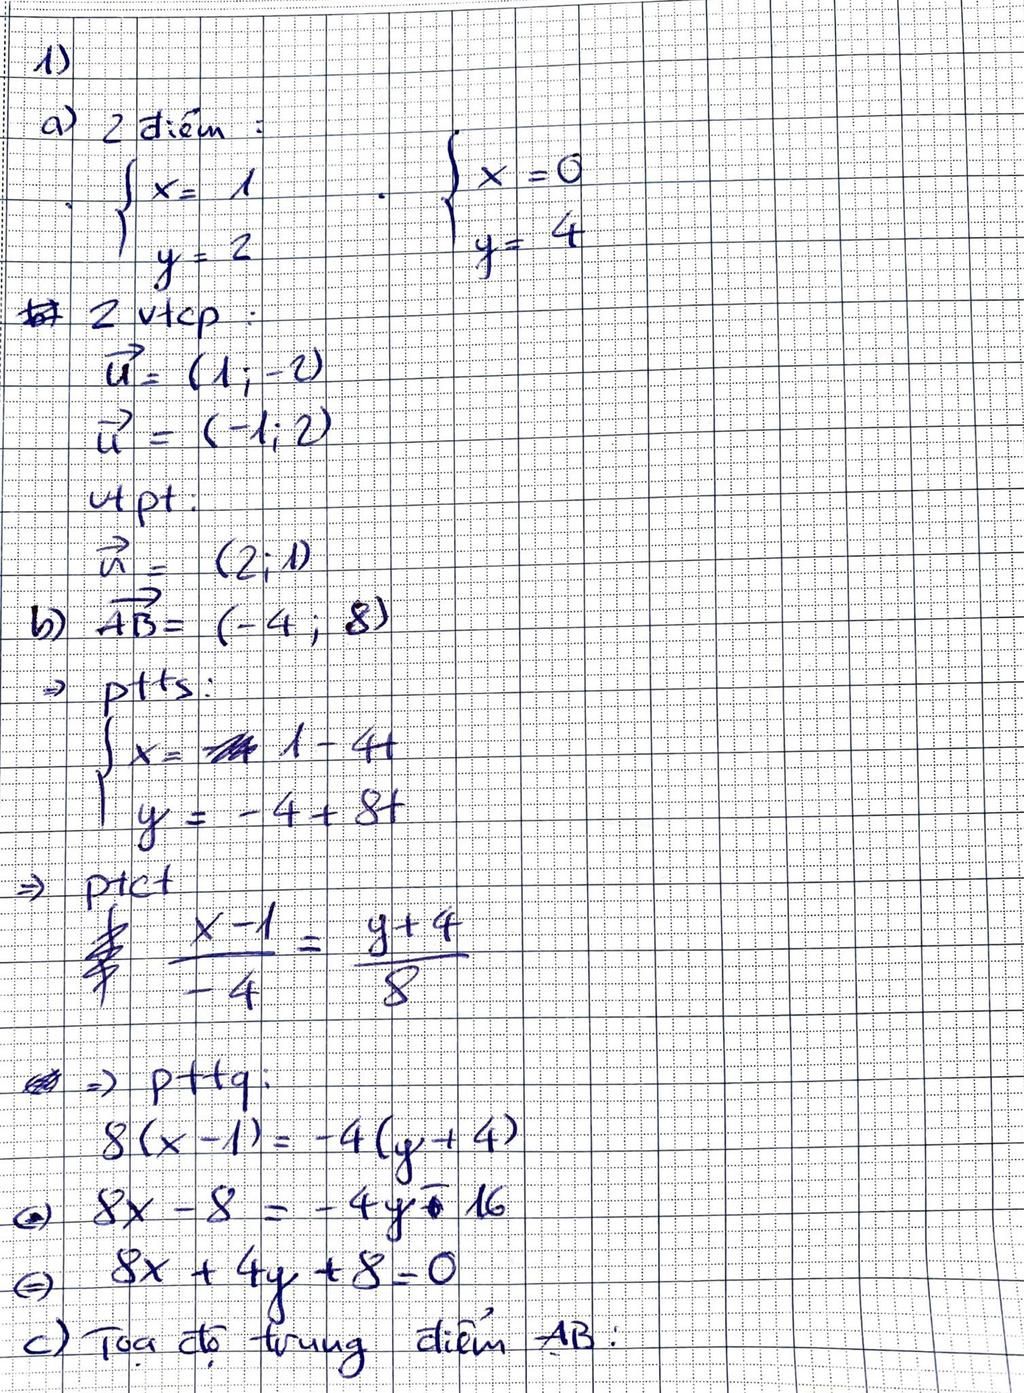 1)
a) 2 điểm :
. { x = 1 . { x = 0
y = 2 y = 4
2 vtcp :
u⃗ = (1; -2)
u⃗ = (-1; 2)
vtpt:
n⃗ = (2; 1)
b) AB⃗ = (-4 ; 8)
=> ptts:
{ x = 1 - 4t
y = -4 + 8t
=> ptct
(x - 1)/(-4) = (y + 4)/8
=> pttq:
8(x - 1) = -4(y + 4)
<=> 8x - 8 = -4y - 16
<=> 8x + 4y + 8 = 0
c) Tọa độ trung điểm AB :